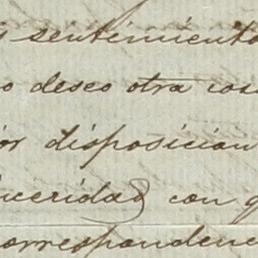 s sentimiento
o deseo otra cos
or disposicion
inceridad con q
correspondenc